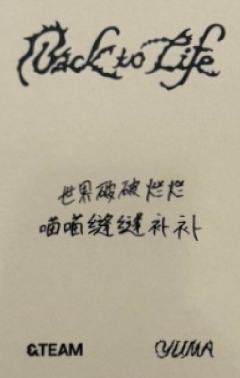 Back to Life
世界破破烂烂
喵喵缝缝补补
&TEAM YUMA